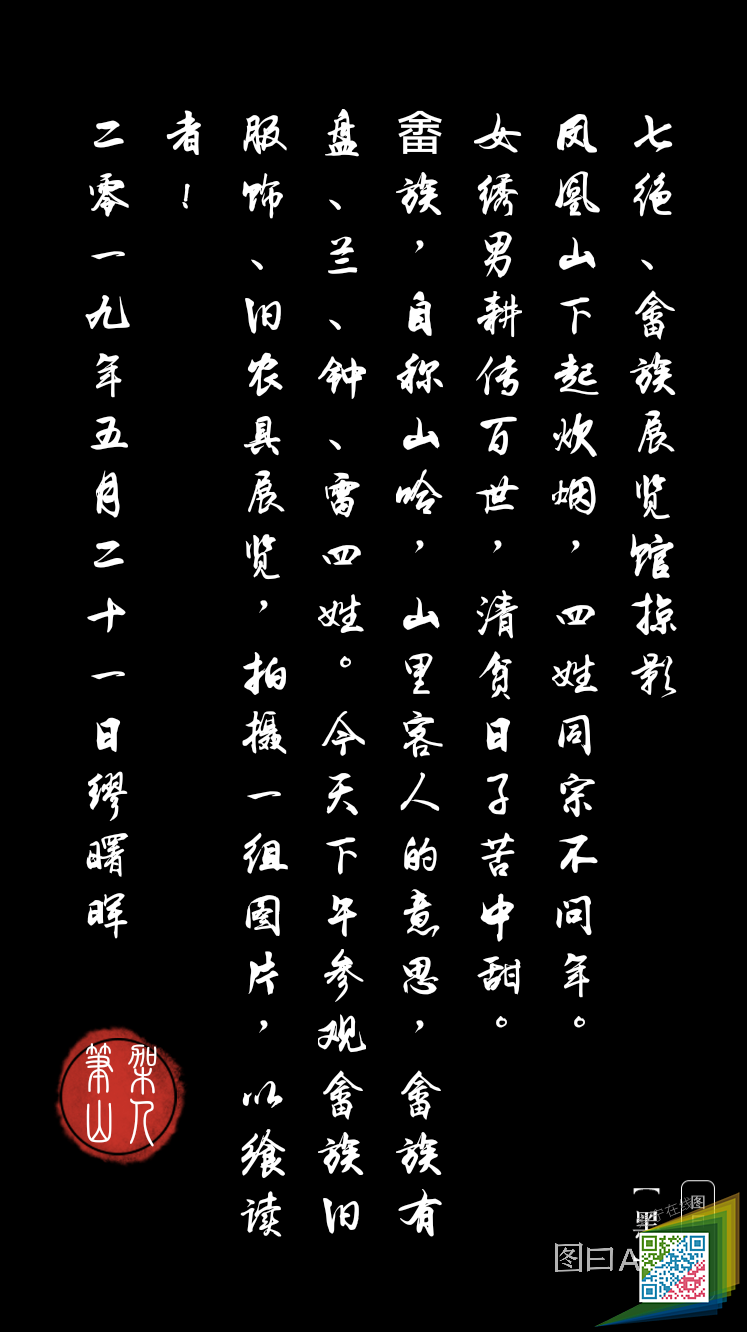 七绝、畲族展览馆掠影
凤凰山下起炊烟，四姓同宗不问年。
女绣男耕传百世，清贫日子苦中甜。
畲族，自称山哈，山里客人的意思，畲族有
盘、兰、钟、雷四姓。今天下午参观畲族旧
服饰、旧农具展览，拍摄一组图片，以飨读
者！
二零一九年五月二十一日缪曙晖
筆架
山人
【黑
图
宁在线
图曰A